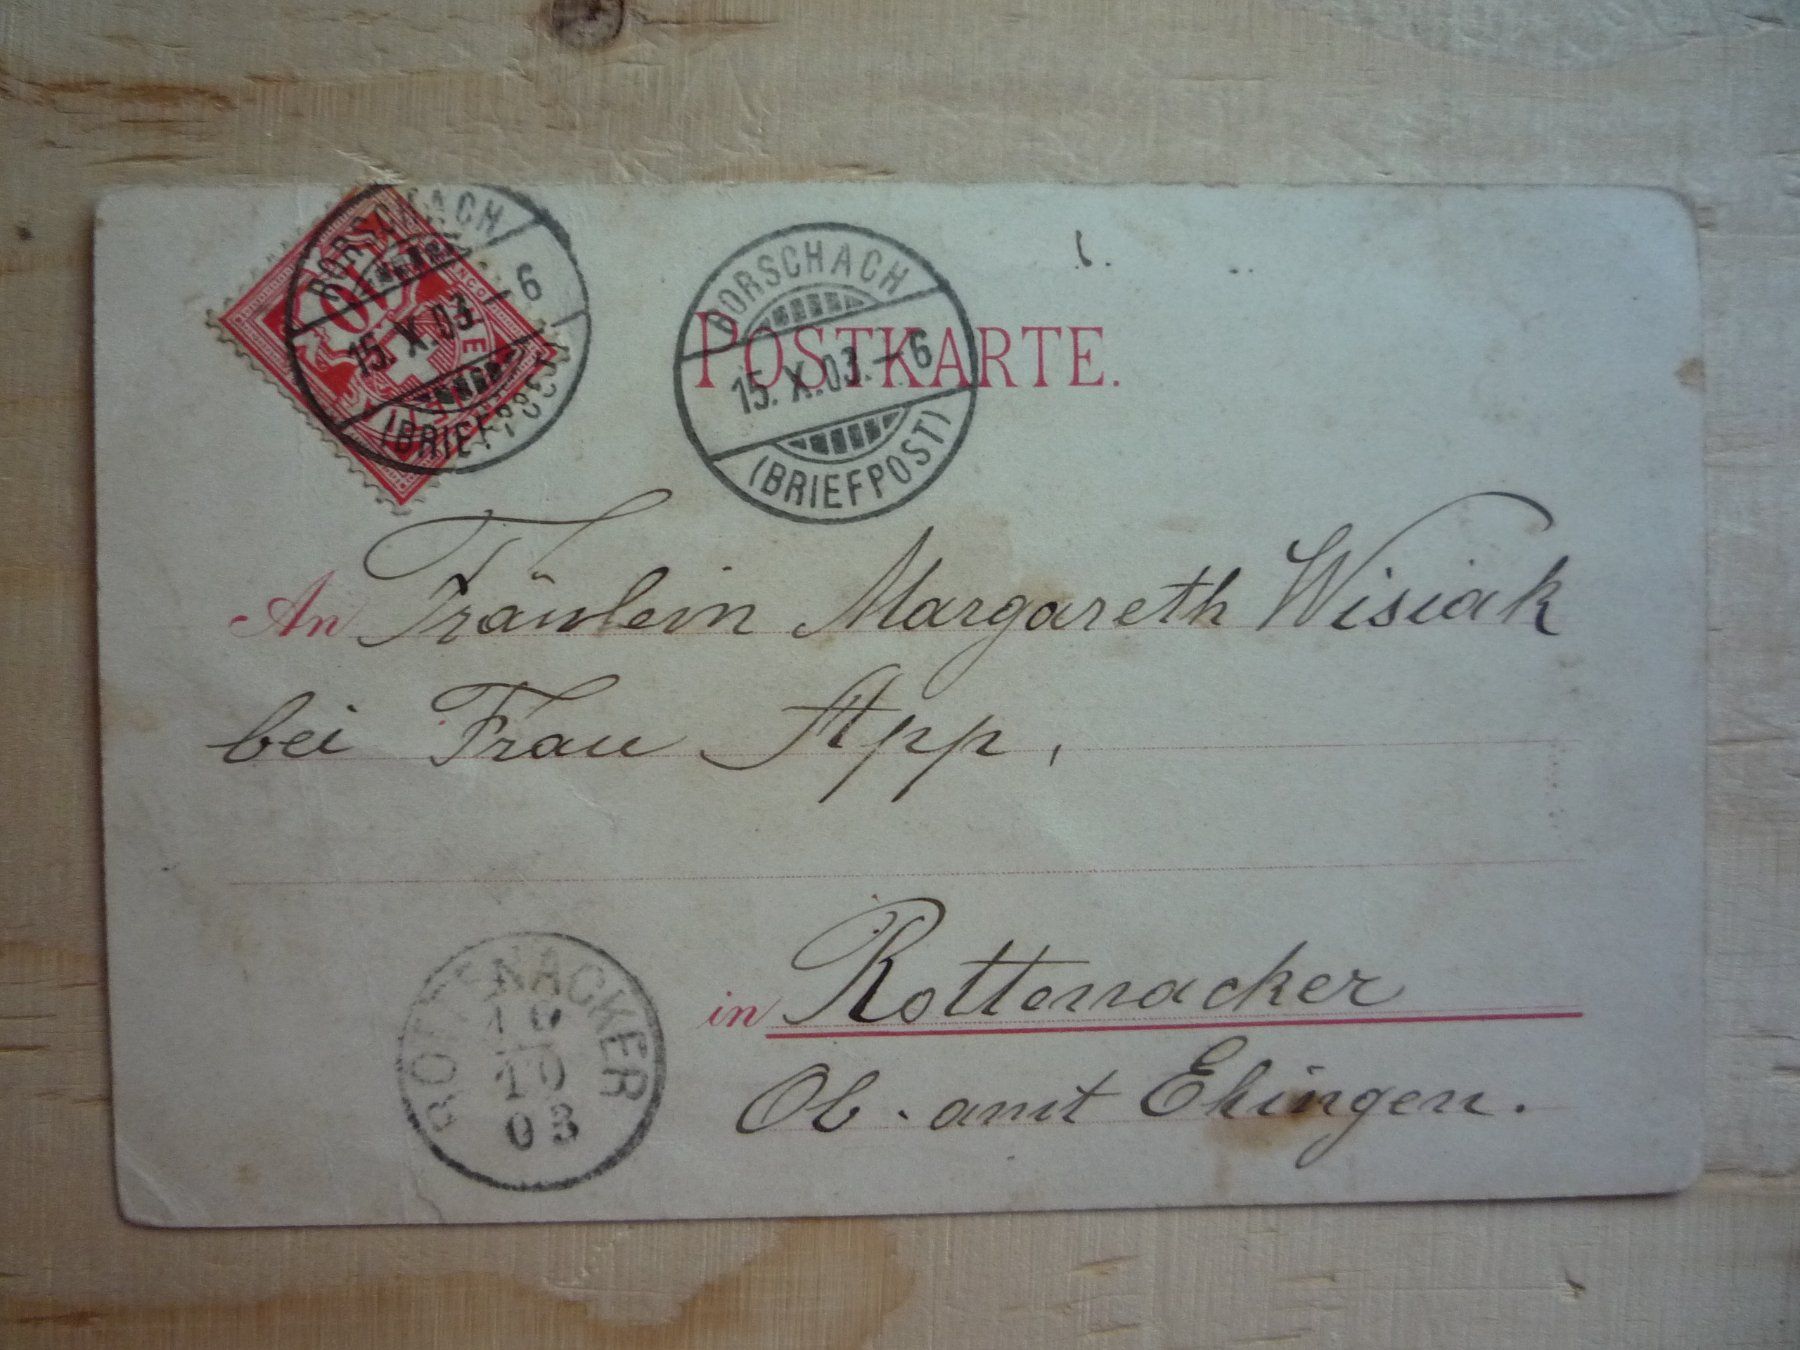 RORSCHACH
15. X. 03. – 6
(BRIEF
10
RORSCHACH
15. X. 03. – 6
(BRIEFPOST)
POSTKARTE.
An Fräulein Margareth Wisiak
bei Frau App,
in Rottenacker
Ob. amt Ehingen.
ROTTENACKER
10
03